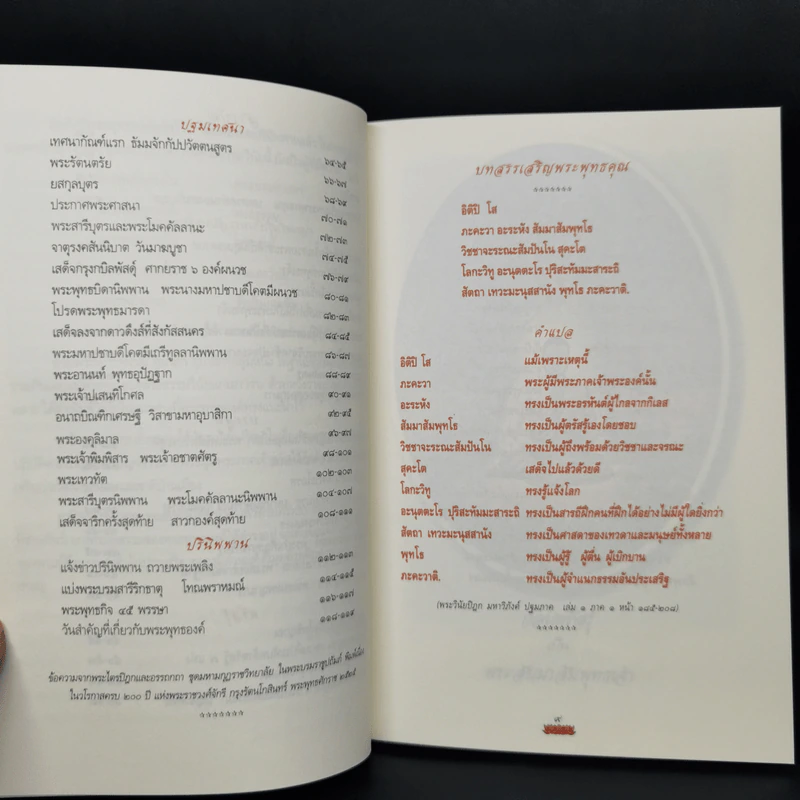 ปฐมเทศนา
เทศนากัณฑ์แรก ธัมมจักกัปปวัตตนสูตร ๖๔-๖๕
พระรัตนตรัย ๖๖-๖๗
ยสกุลบุตร ๖๘-๖๙
ประกาศพระศาสนา ๗๐-๗๑
พระสารีบุตรและพระโมคคัลลานะ ๗๒-๗๓
จาตุรงคสันนิบาต วันมาฆบูชา ๗๔-๗๕
เสด็จกรุงกบิลพัสดุ์ ศากยราช ๖ องค์ผนวช ๗๖-๗๙
พระพุทธบิดานิพพาน พระนางมหาปชาบดีโคตมีผนวช ๘๐-๘๑
โปรดพระพุทธมารดา ๘๒-๘๓
เสด็จลงจากดาวดึงส์ที่สังกัสสนคร ๘๔-๘๕
พระมหาปชาบดีโคตมีเถรีทูลลานิพพาน ๘๖-๘๗
พระอานนท์ พุทธอุปัฏฐาก ๘๘-๘๙
พระเจ้าปเสนทิโกศล ๙๐-๙๑
อนาถบิณฑิกเศรษฐี วิสาขามหาอุบาสิกา ๙๒-๙๕
พระองคุลิมาล ๙๖-๙๗
พระเจ้าพิมพิสาร พระเจ้าอชาตศัตรู ๙๘-๑๐๑
พระเทวทัต ๑๐๒-๑๐๓
พระสารีบุตรนิพพาน พระโมคคัลลานะนิพพาน ๑๐๔-๑๐๗
เสด็จจาริกครั้งสุดท้าย สาวกองค์สุดท้าย ๑๐๘-๑๑๑
ปรินิพพาน
แจ้งข่าวปรินิพพาน ถวายพระเพลิง ๑๑๒-๑๑๓
แบ่งพระบรมสารีริกธาตุ โทณพราหมณ์ ๑๑๔-๑๑๕
พระพุทธกิจ ๔๕ พรรษา ๑๑๖-๑๑๗
วันสำคัญที่เกี่ยวกับพระพุทธองค์ ๑๑๘-๑๑๙
ข้อความจากพระไตรปิฎกและอรรถกถา ชุดมหามกุฏราชวิทยาลัย ในพระบรมราชูปถัมภ์ พิมพ์เนื่อง
ในวโรกาสครบ ๒๐๐ ปี แห่งพระราชวงศ์จักรี กรุงรัตนโกสินทร์ พระพุทธศักราช ๒๕๒๕
บทสรรเสริญพระพุทธคุณ
อิติปิ โส
ภะคะวา อะระหัง สัมมาสัมพุทโธ
วิชชาจะระณะสัมปันโน สุคะโต
โลกะวิทู อะนุตตะโร ปุริสะทัมมะสาระถิ
สัตถา เทวะมะนุสสานัง พุทโธ ภะคะวาติ.
คำแปล
อิติปิ โส แม้เพราะเหตุนี้
ภะคะวา พระผู้มีพระภาคเจ้าพระองค์นั้น
อะระหัง ทรงเป็นพระอรหันต์ผู้ไกลจากกิเลส
สัมมาสัมพุทโธ ทรงเป็นผู้ตรัสรู้เองโดยชอบ
วิชชาจะระณะสัมปันโน ทรงเป็นผู้ถึงพร้อมด้วยวิชชาและจรณะ
สุคะโต เสด็จไปแล้วด้วยดี
โลกะวิทู ทรงรู้แจ้งโลก
อะนุตตะโร ปุริสะทัมมะสาระถิ ทรงเป็นสารถีฝึกคนที่ฝึกได้อย่างไม่มีผู้ใดยิ่งกว่า
สัตถา เทวะมะนุสสานัง ทรงเป็นศาสดาของเทวดาและมนุษย์ทั้งหลาย
พุทโธ ทรงเป็นผู้รู้ ผู้ตื่น ผู้เบิกบาน
ภะคะวาติ. ทรงเป็นผู้จำแนกธรรมอันประเสริฐ
(พระวินัยปิฎก มหาวิภังค์ ปฐมภาค เล่ม ๑ ภาค ๑ หน้า ๑๘๕-๒๐๘)
๙